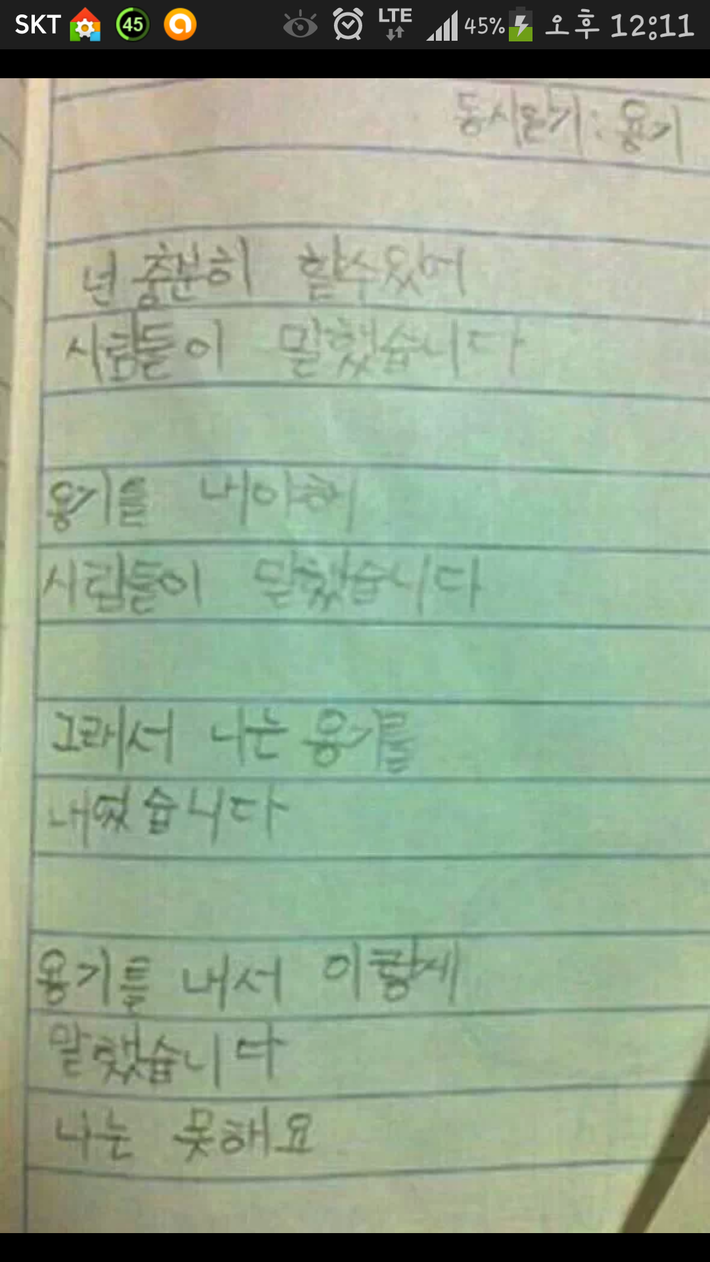 SKT 45 LTE 45% 오후 12:11
동시쓰기: 용기
넌 충분히 할수있어
사람들이 말했습니다
용기를 내야해
사람들이 말했습니다
그래서 나는 용기를
내었습니다
용기를 내서 이렇게
말했습니다
나는 못해요